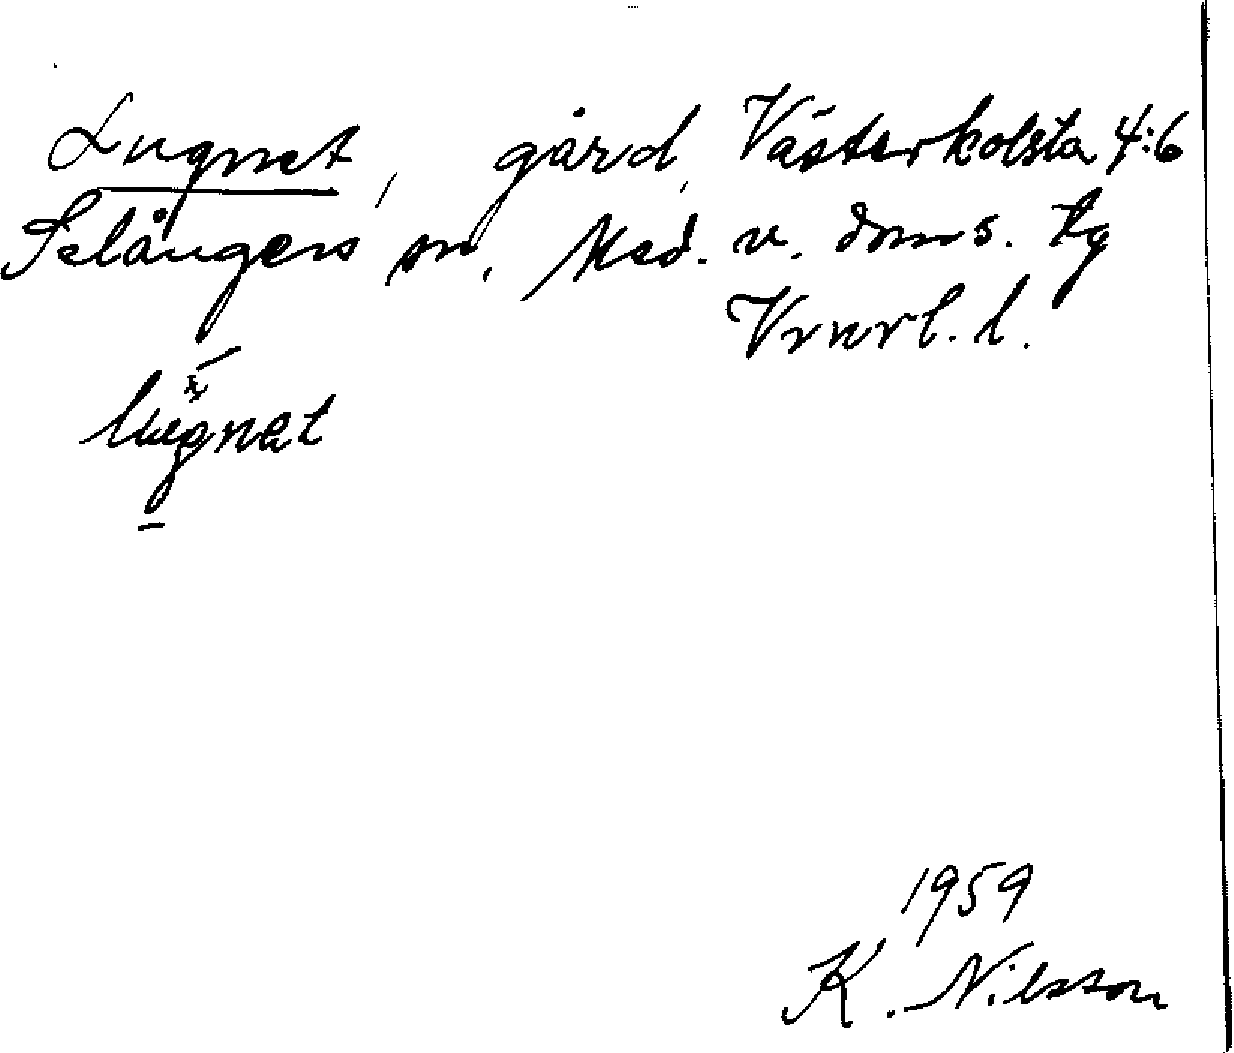 Lugnet, gård, Västerkolsta 4:6
Selångers sn, Med. v. doms. tg
Vrnrl. l.
lugnet
1959
K. Nilsson